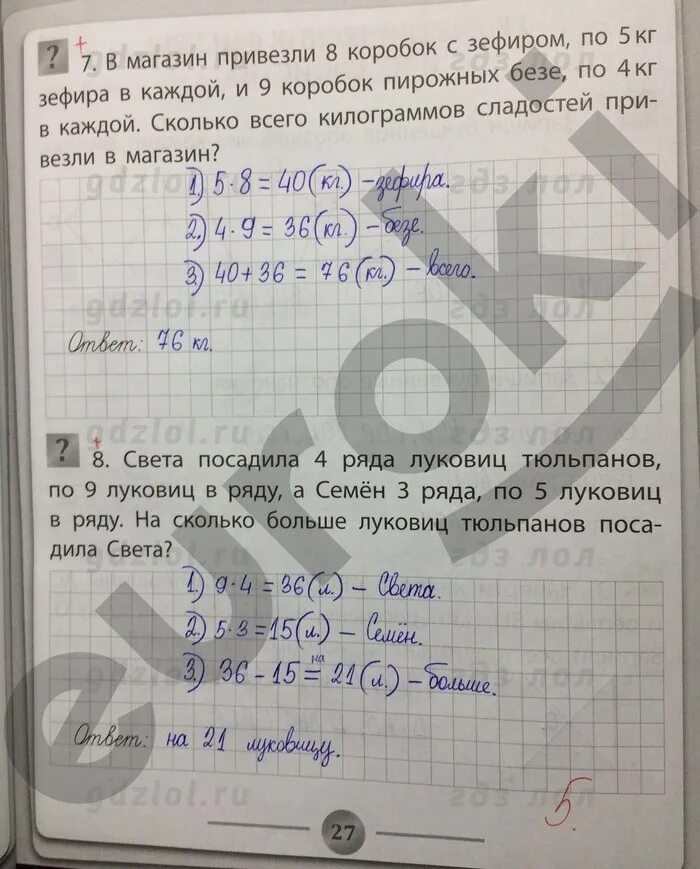 ? + 7. В магазин привезли 8 коробок с зефиром, по 5 кг
зефира в каждой, и 9 коробок пирожных безе, по 4 кг
в каждой. Сколько всего килограммов сладостей при-
везли в магазин?
1.) 5·8 = 40 (кг.) – зефира.
2.) 4·9 = 36 (кг.) – безе.
3.) 40+36 = 76 (кг.) – всего.
Ответ: 76 кг.
? + 8. Света посадила 4 ряда луковиц тюльпанов,
по 9 луковиц в ряду, а Семён 3 ряда, по 5 луковиц
в ряду. На сколько больше луковиц тюльпанов поса-
дила Света?
1.) 9·4 = 36 (л.) – Света.
2.) 5·3 = 15 (л.) – Семён.
3.) 36 – 15 = на 21 (л.) – больше.
Ответ: на 21 луковицу.
5.
27
euroki
gdzlol.ru
gdzlol.ru
gdzlol.ru
gdzlol.ru